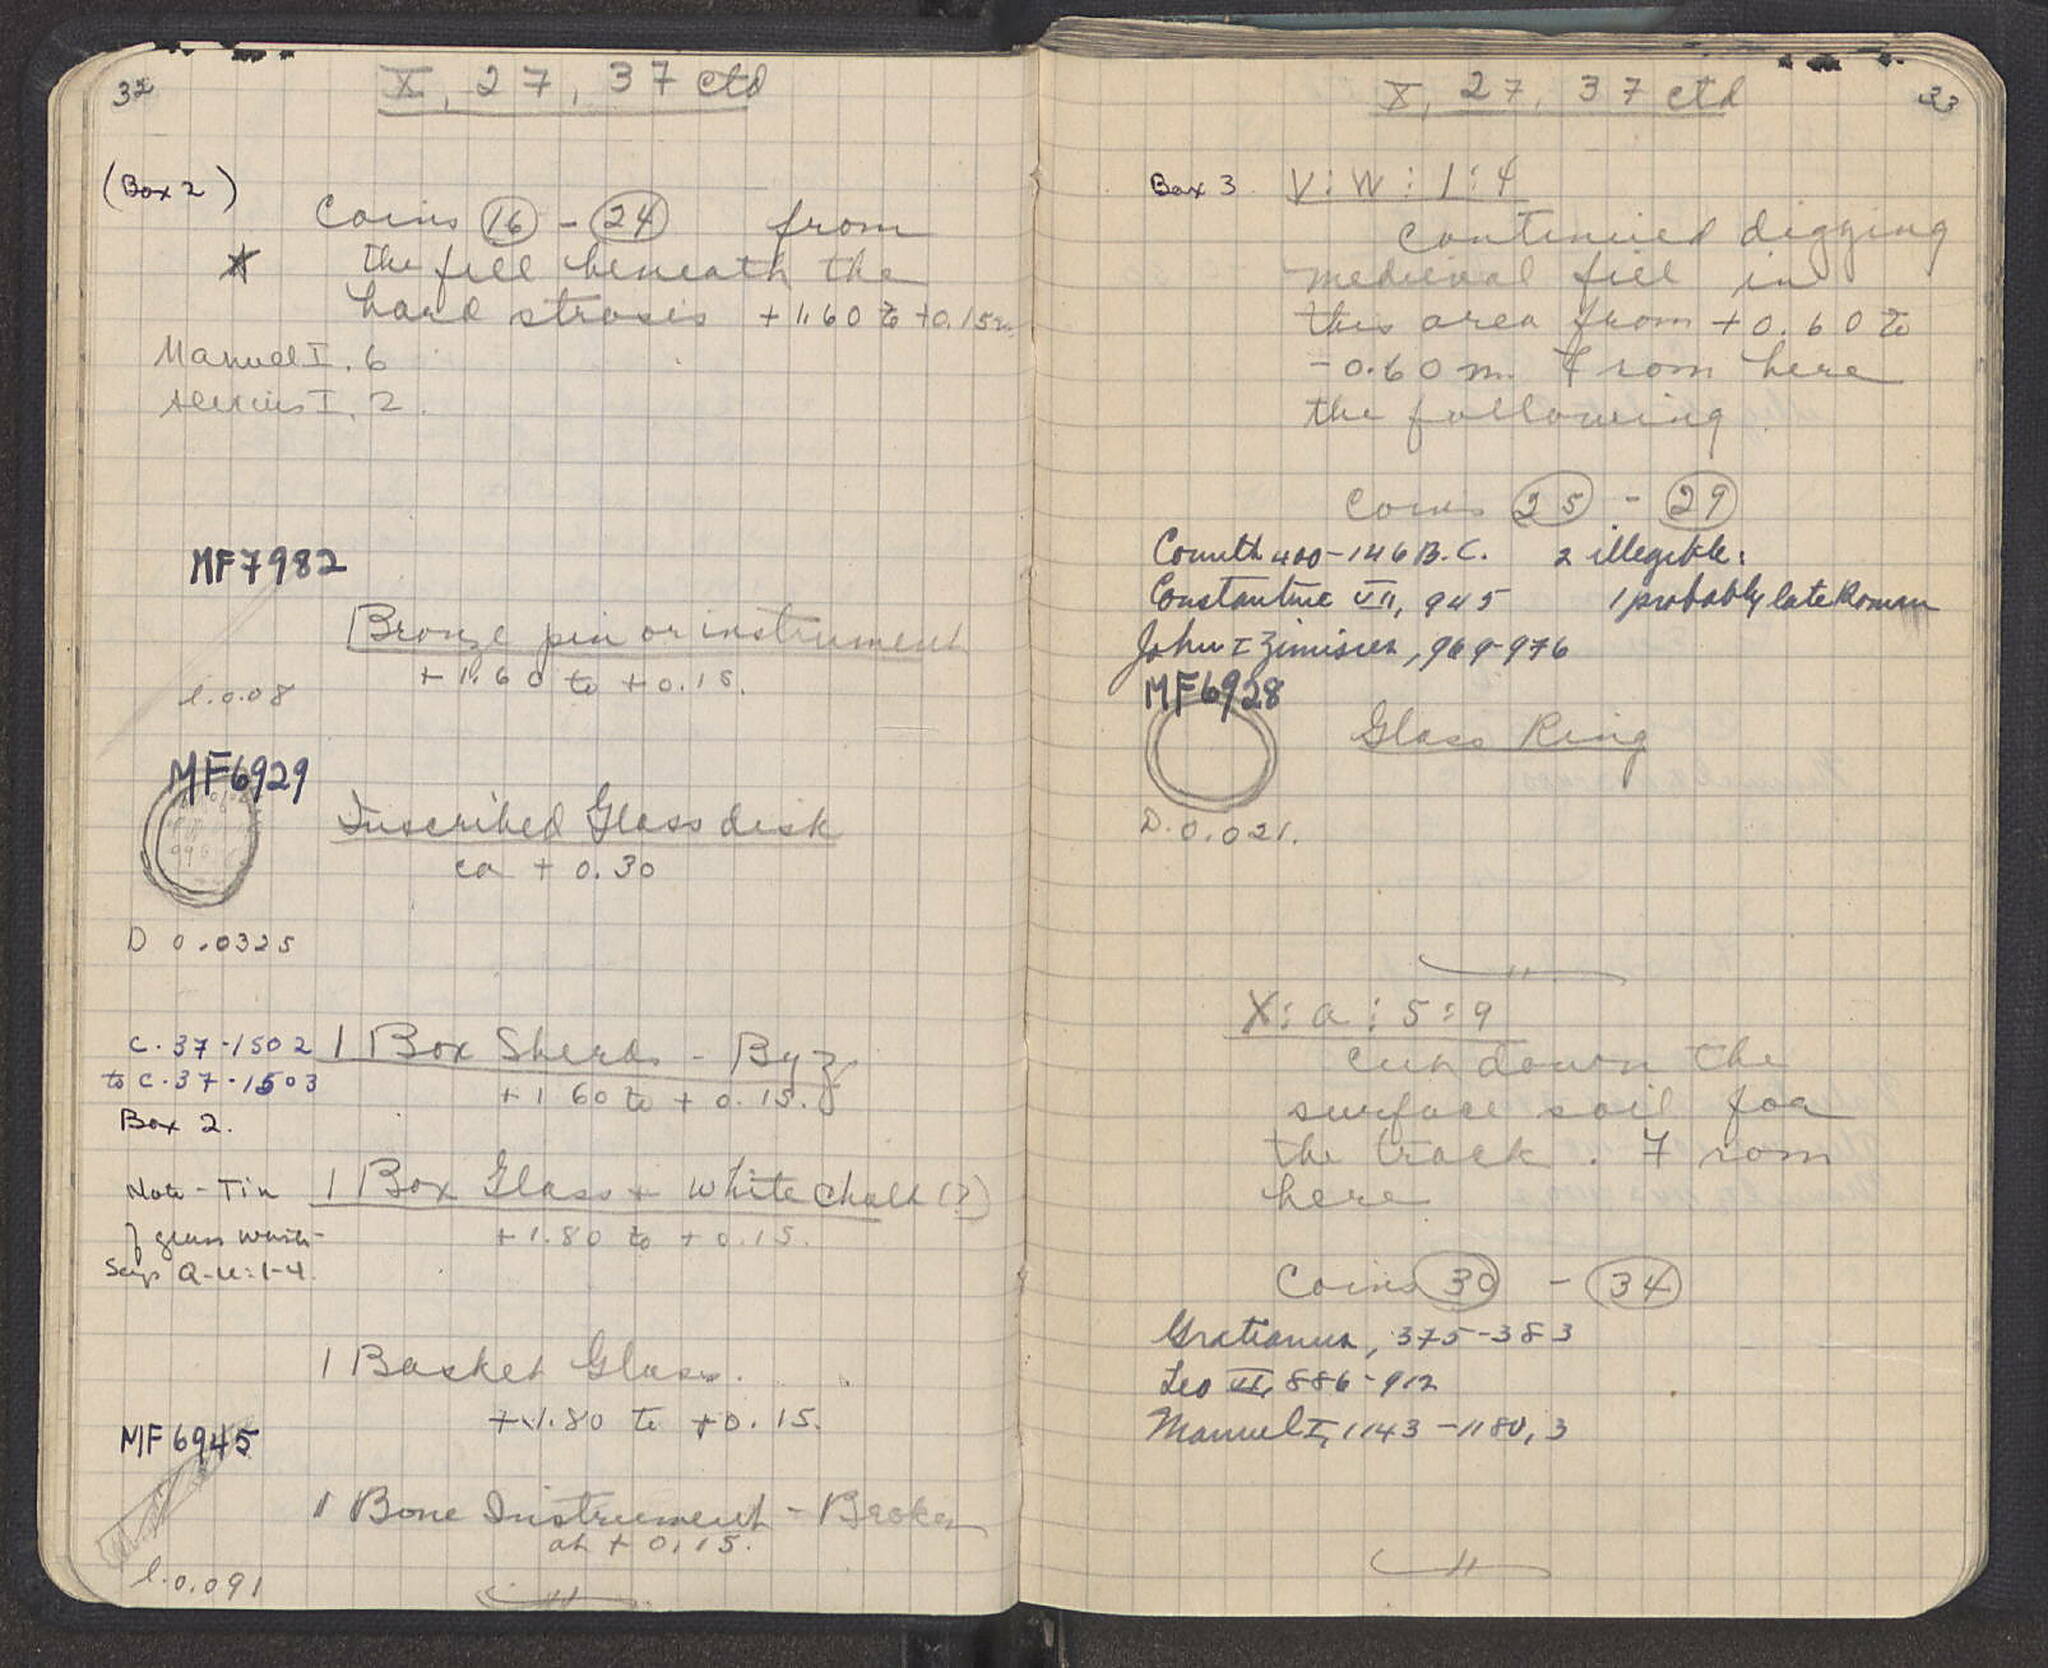 32
X, 27, 37 ctd
(Box 2)
Coins 16 - 24 from
the fill beneath the
hard strosis +1.60 to +0.15m
Manuel I. 6
Alexius I, 2.
MF7982
Bronze pin or instrument
+1.60 to +0.15.
l.0.08
MF6929
Inscribed Glass disk
ca + 0.30
D 0.0325
C.37-1502
to C.37-1503
Box 2.
1 Box Sherds - Byz
+1 60 to + 0.15.
Note - Tin
of glass waste
says Q-U:1-4.
1 Box Glass + White chalk (?)
+1.80 to +0.15.
1 Basket Glass.
+1.80 to +0.15.
MF6945
1 Bone Instrument - Broken
at +0.15.
l.0.091
X, 27, 37 ctd
33
Box 3 V:W:1:4
continued digging
medieval fill in
this area from +0.60 to
-0.60m. From here
the following
Coins 25 - 29
Corinth 400-146 B.C. 2 illegible:
Constantine VII, 945 1 probably late Roman
John I Zimisces, 969-976
MF6928
Glass Ring
D.0.021.
X:a:5:9
cut down the
surface soil for
the track. From
here
Coins 30 - 34
Gratianus, 375-383
Leo VI, 886-912
Manuel I, 1143-1180, 3